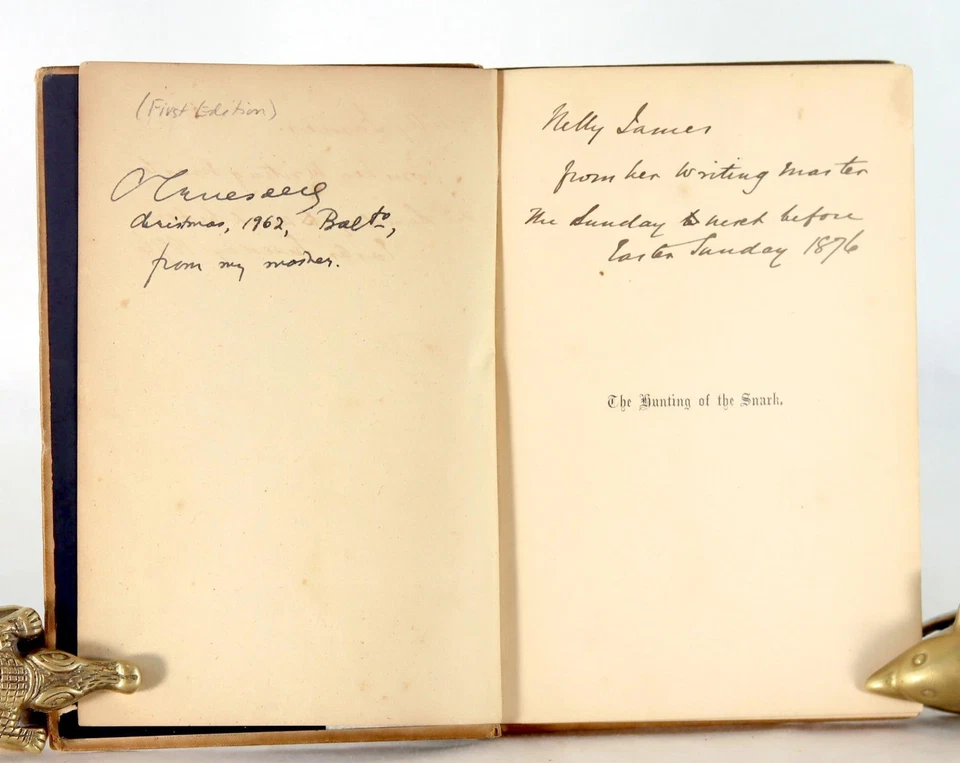 (First Edition)
Christmas, 1962, Balto,
from my mother.
Nelly James
from her Writing Master
The Sunday next before
Easter Sunday 1876
The Hunting of the Snark.